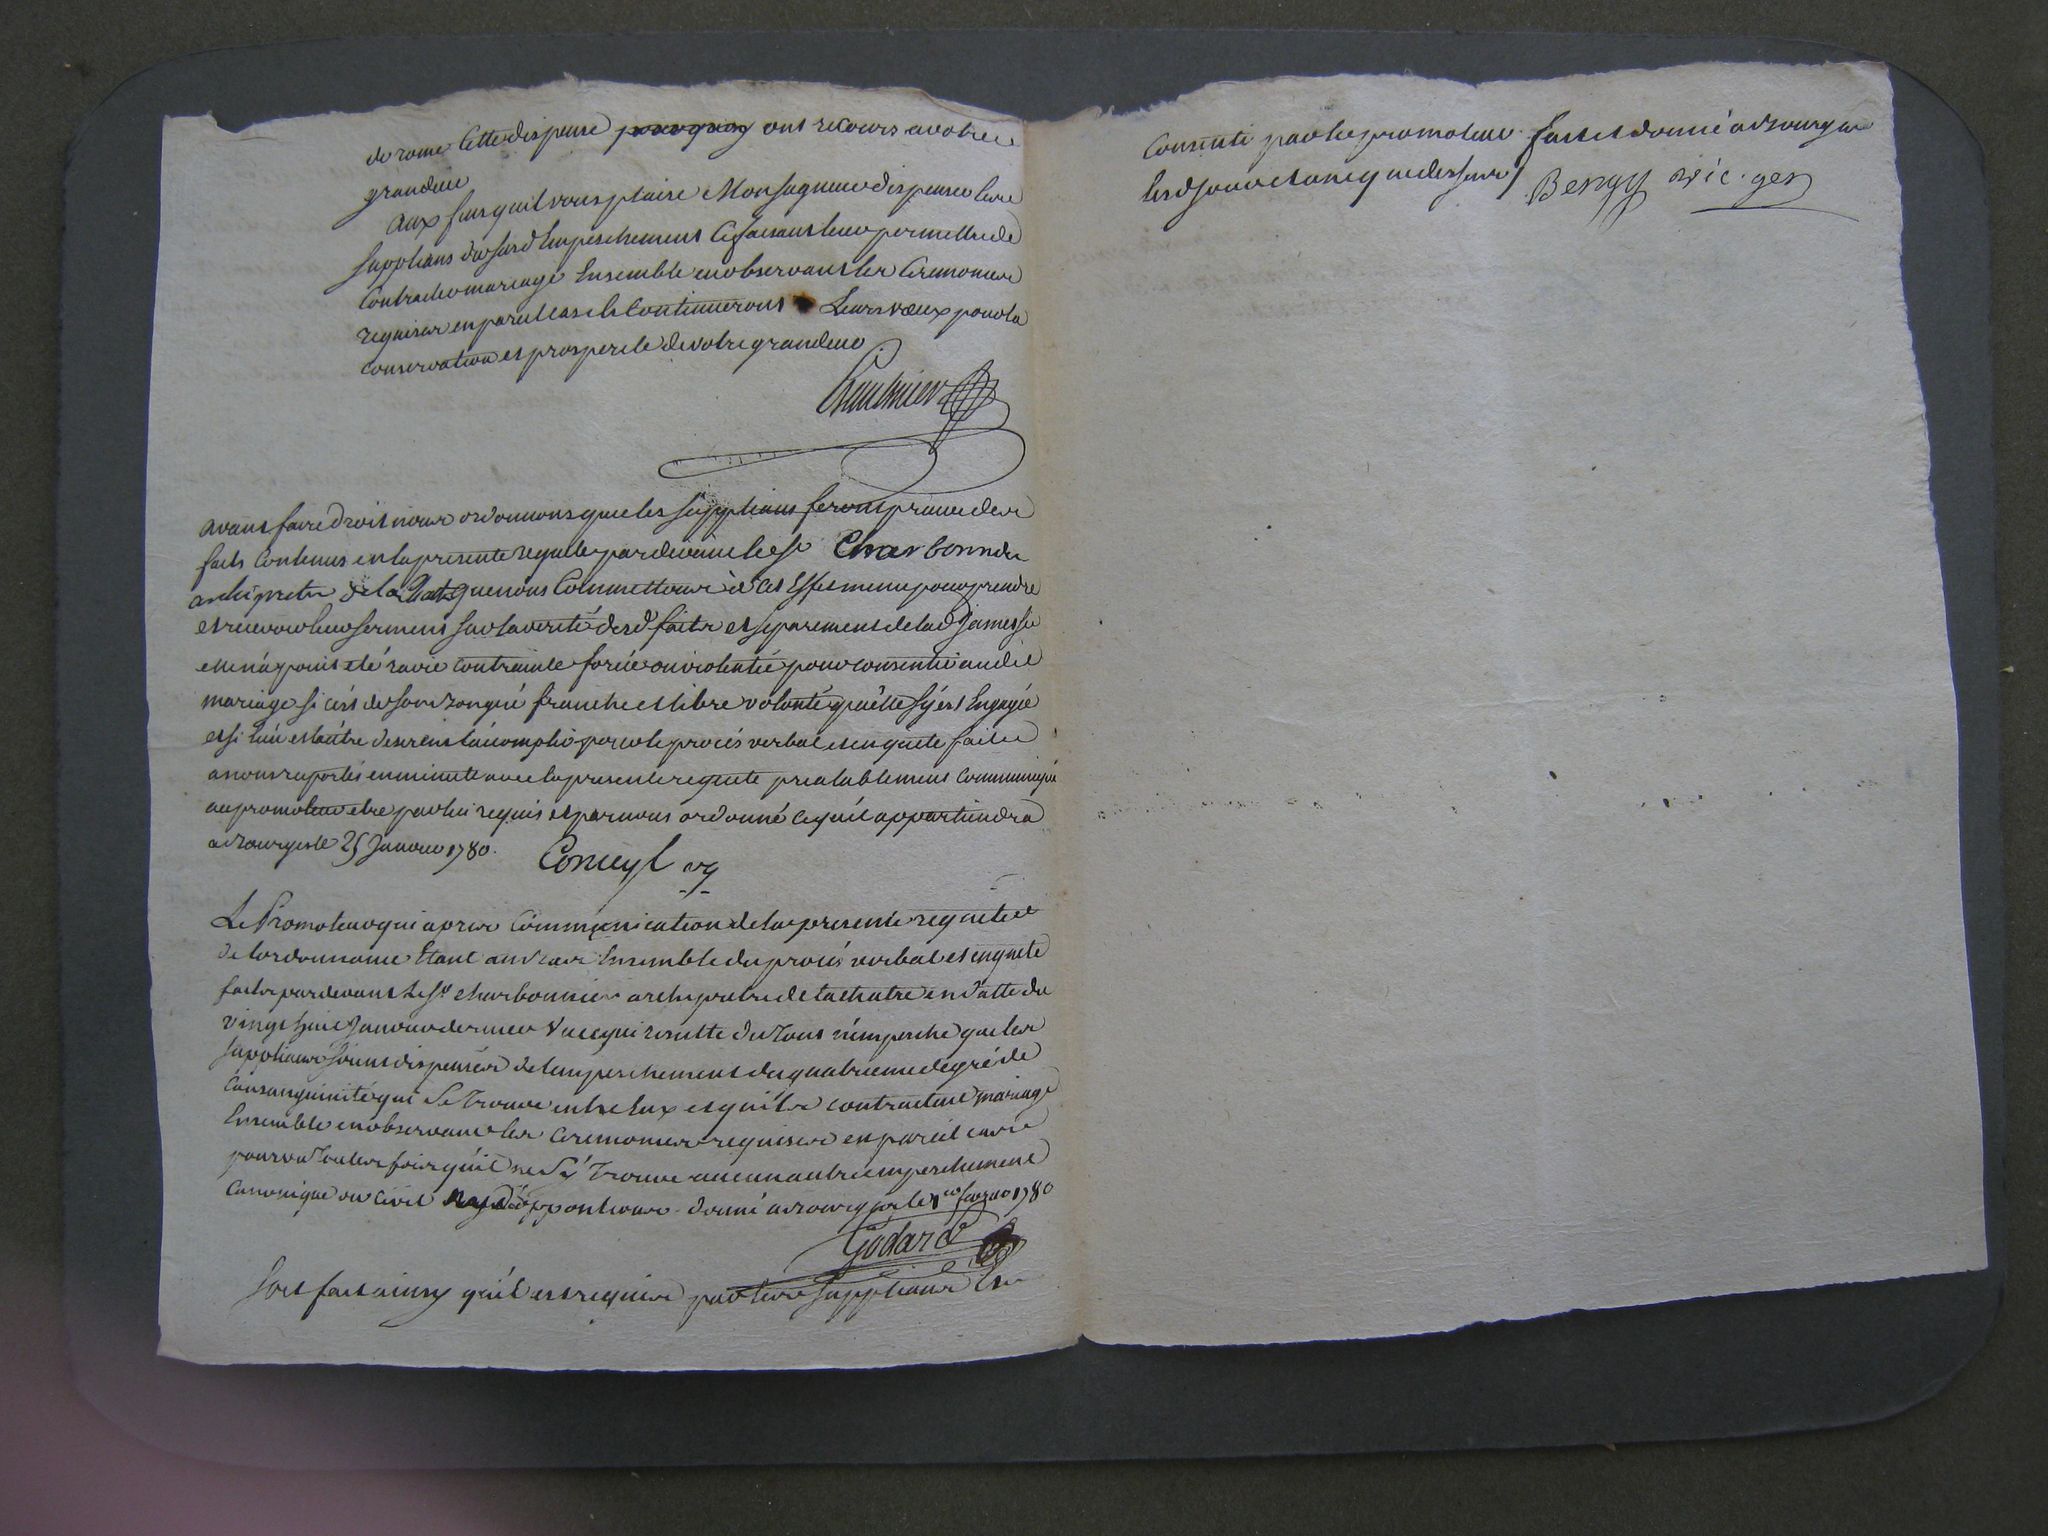 de rome Cette dispense pourquoy ont recours a votre
grandeur
aux fins quil vous plaise Monseigneur dispenser les
supplians dud Empeschement Ce faisant leur permettre de
Contracter mariage Ensemble en observant les Ceremonies
requises en pareil cas ils Continueront Leurs vœux pour la
conservation et prosperité de votre grandeur
avant faire droit nous ordonnons que les supplians feront preuve des
faits Contenus en la presente requete pardevant le Sr Charbonnier
archipretre de la Chatre que nous Commettons à Cet Effet meme pour prendre
et recevoir leur serment sur la verité desd faits et separement de lad James si
elle n'a point eté ravie contrainte forcée ou violentée pour consentir audit
mariage si c'est de son bon gré franche et libre volonté qu'elle s'y est Engagée
et si l'un et l'autre pour le procès verbal et enquete faitte
a nous raportés en minutte avec la presente requete prealablement Communiqué
au promoteur etre par lui requis et par nous ordonné ce qu'il appartiendra
a Bourges le 25 Janvier 1780. vg
Le Promoteur qui a pris Communication de la presente requete
de l'ordonnance Etant au bas Ensemble du procès verbal et enquete
faitte pardevant le Sr charbonnier archipretre de la chatre en datte du
vingt huit Janvier dernier Vu ce qui resulte du tout n'empesche que les
supplians soient dispensés de l'empeschement du quatrieme degré de
Consanguinité qui Se trouve entre Eux et qu'ils contractent mariage
Ensemble en observant les Ceremonies requises en pareil cas
pourvu toutes fois qu'il ne S'y trouve aucun autre empeschement
canonique ou civil ny oppositions donné a Bourges le 1er fevrier 1780
Godard
Soit fait ainsy qu'il est requis par les supplians Et
Consenti par le promoteur fait et donné a Bourges
lesd jour et an que dessus Bengy vic. gen